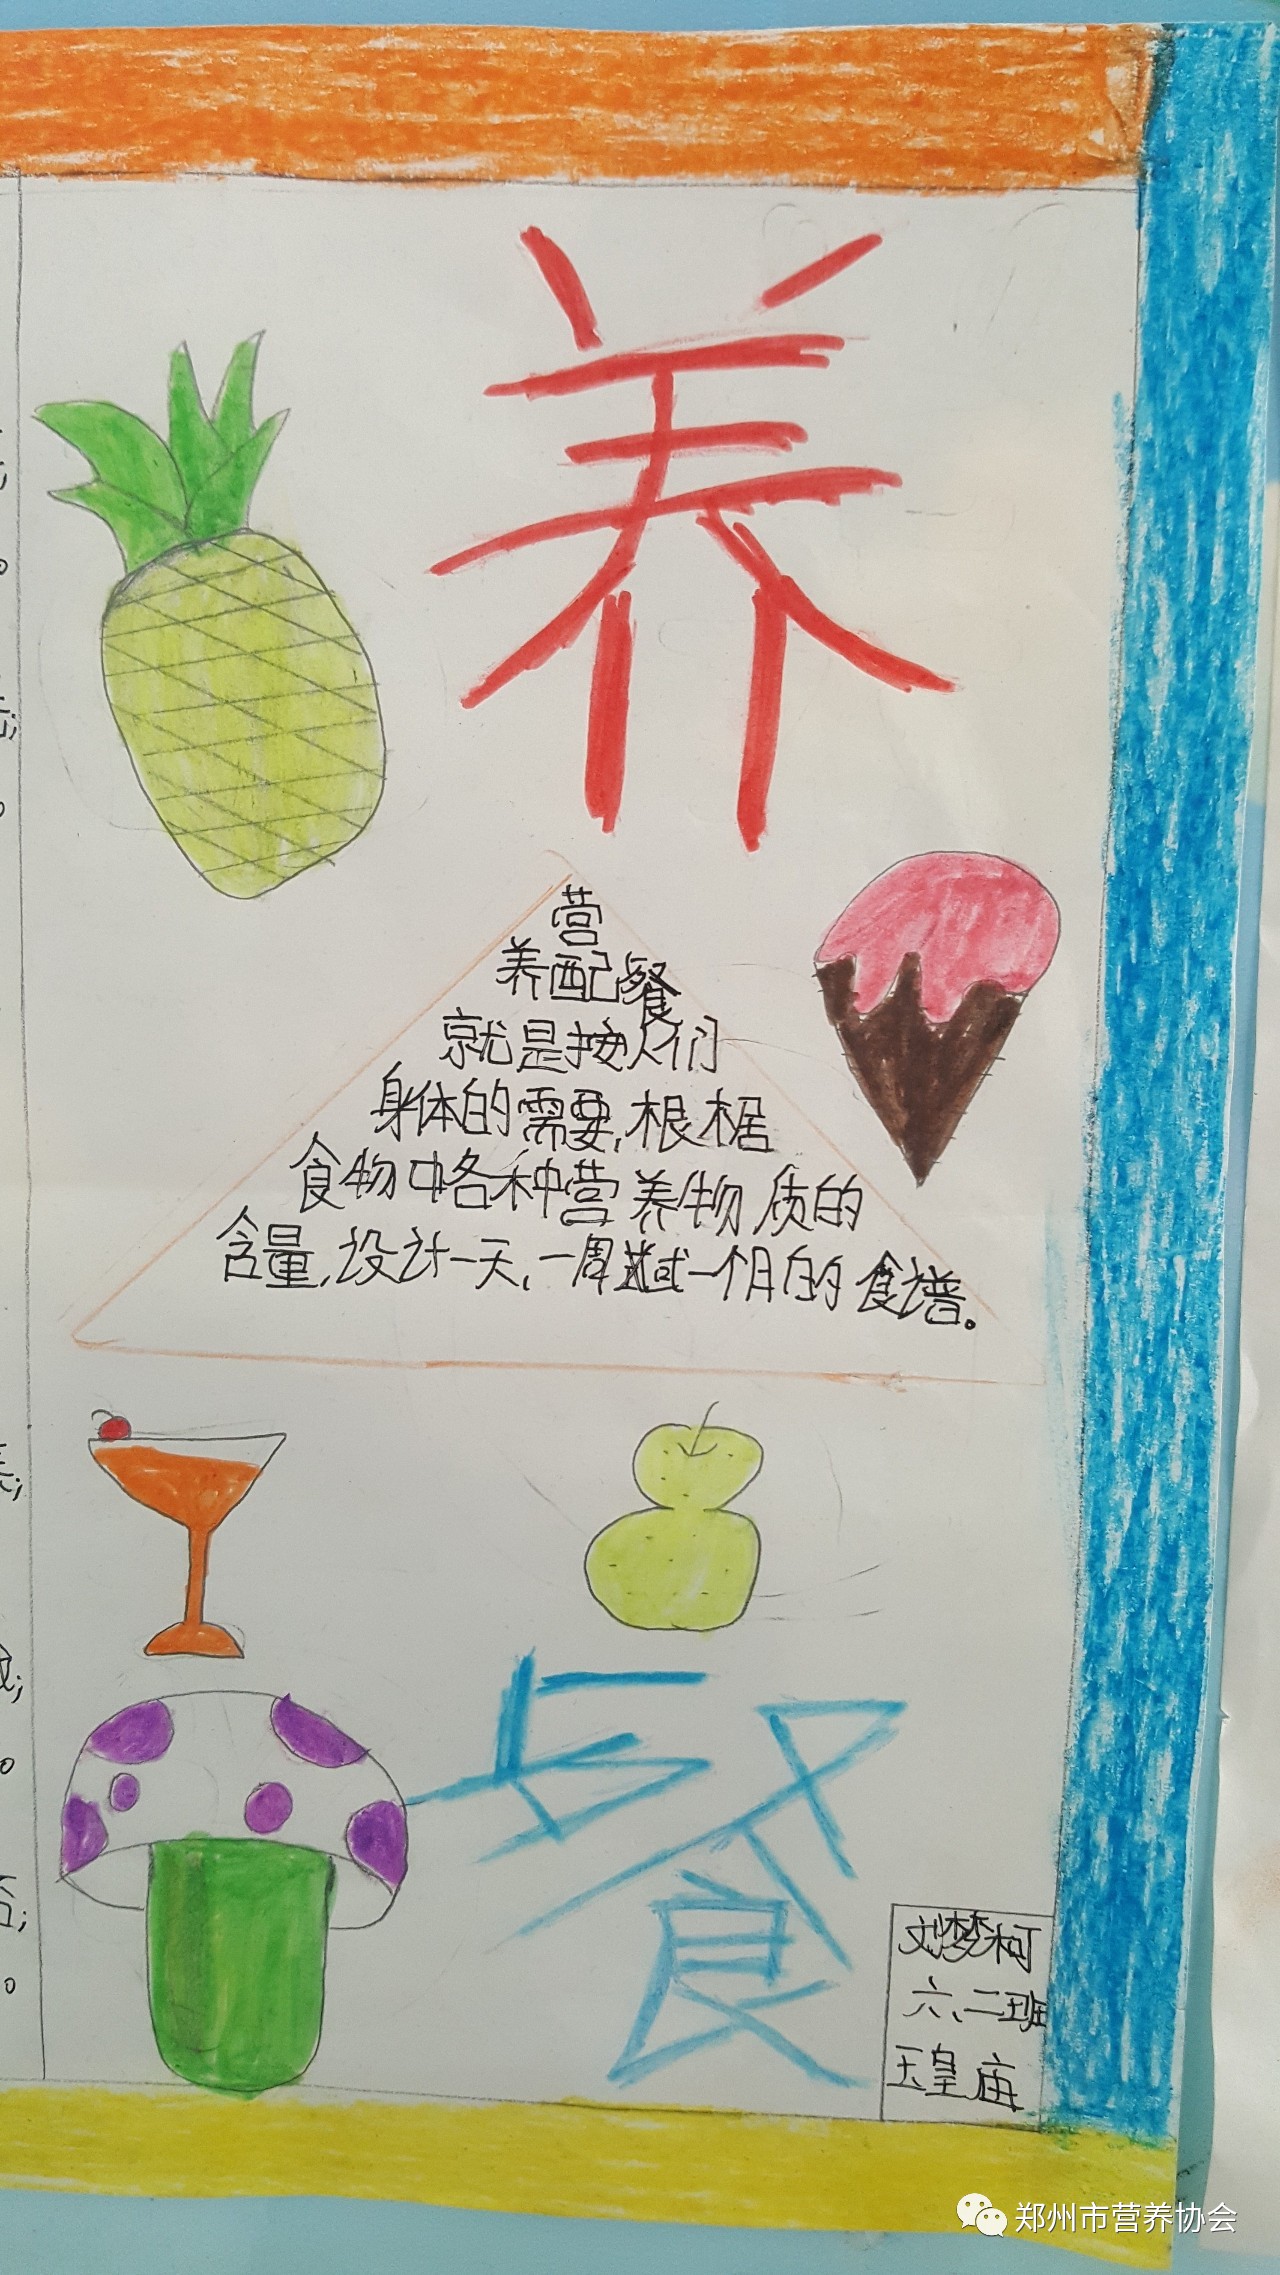 养
营
养配餐
就是按人们
身体的需要,根据
食物中各种营养物质的
含量,设计一天,一周或一个月的食谱。
餐
刘梦柯
六、二班
玉皇庙
郑州市营养协会